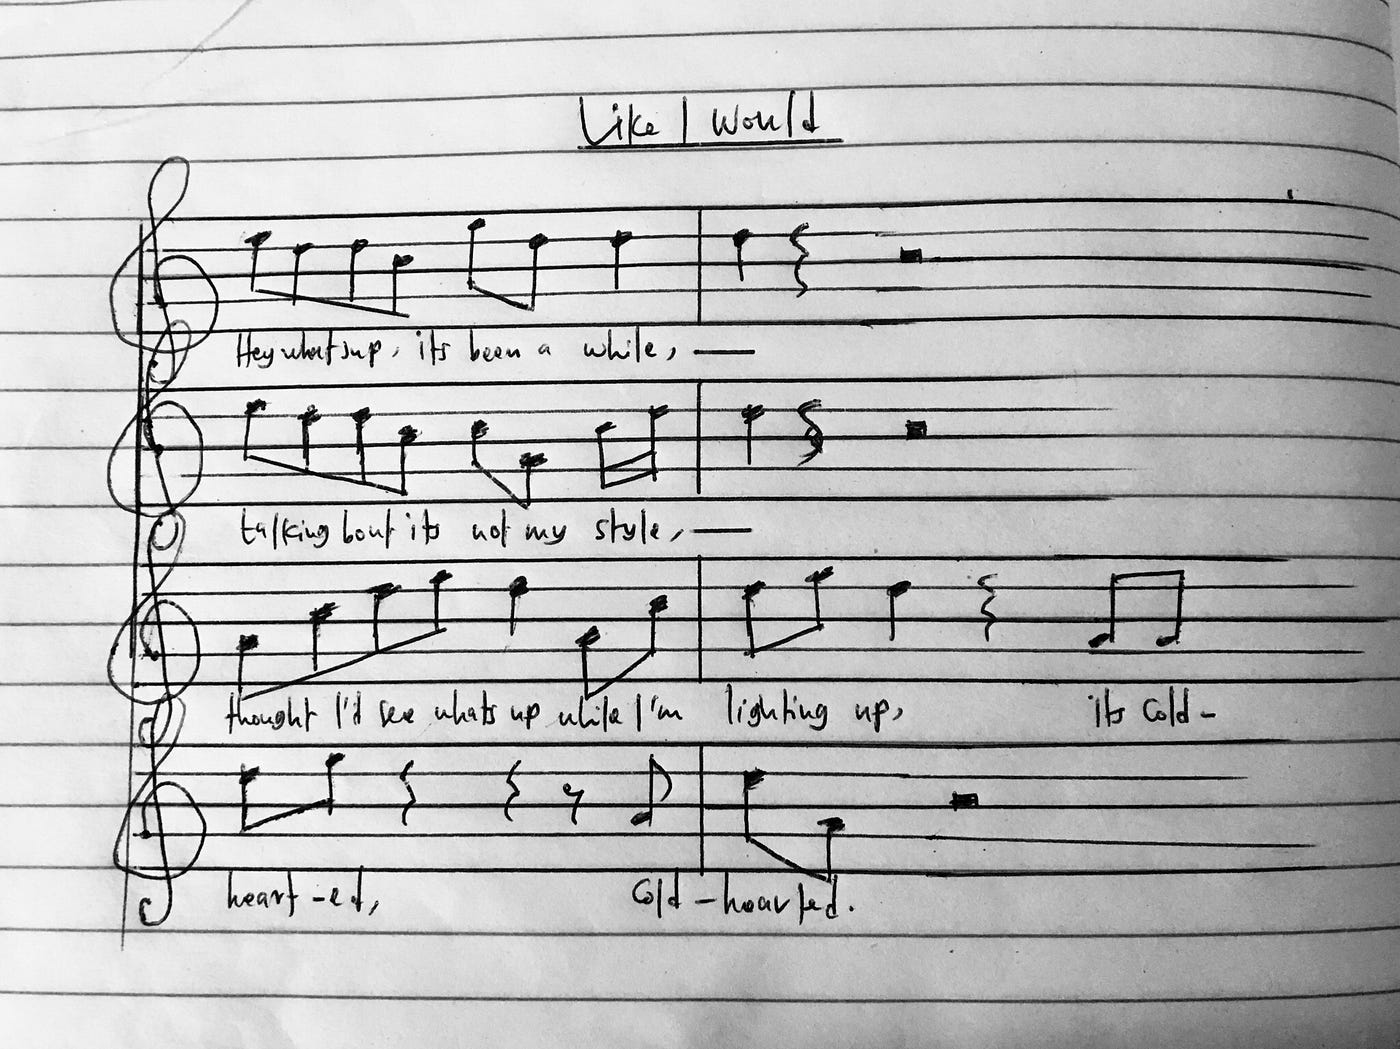 Like I Would
Hey whats up, its been a while,
talking bout its not my style,
thought I'd see whats up while I'm lighting up, its Cold-
heart-ed, Cold-hearted.